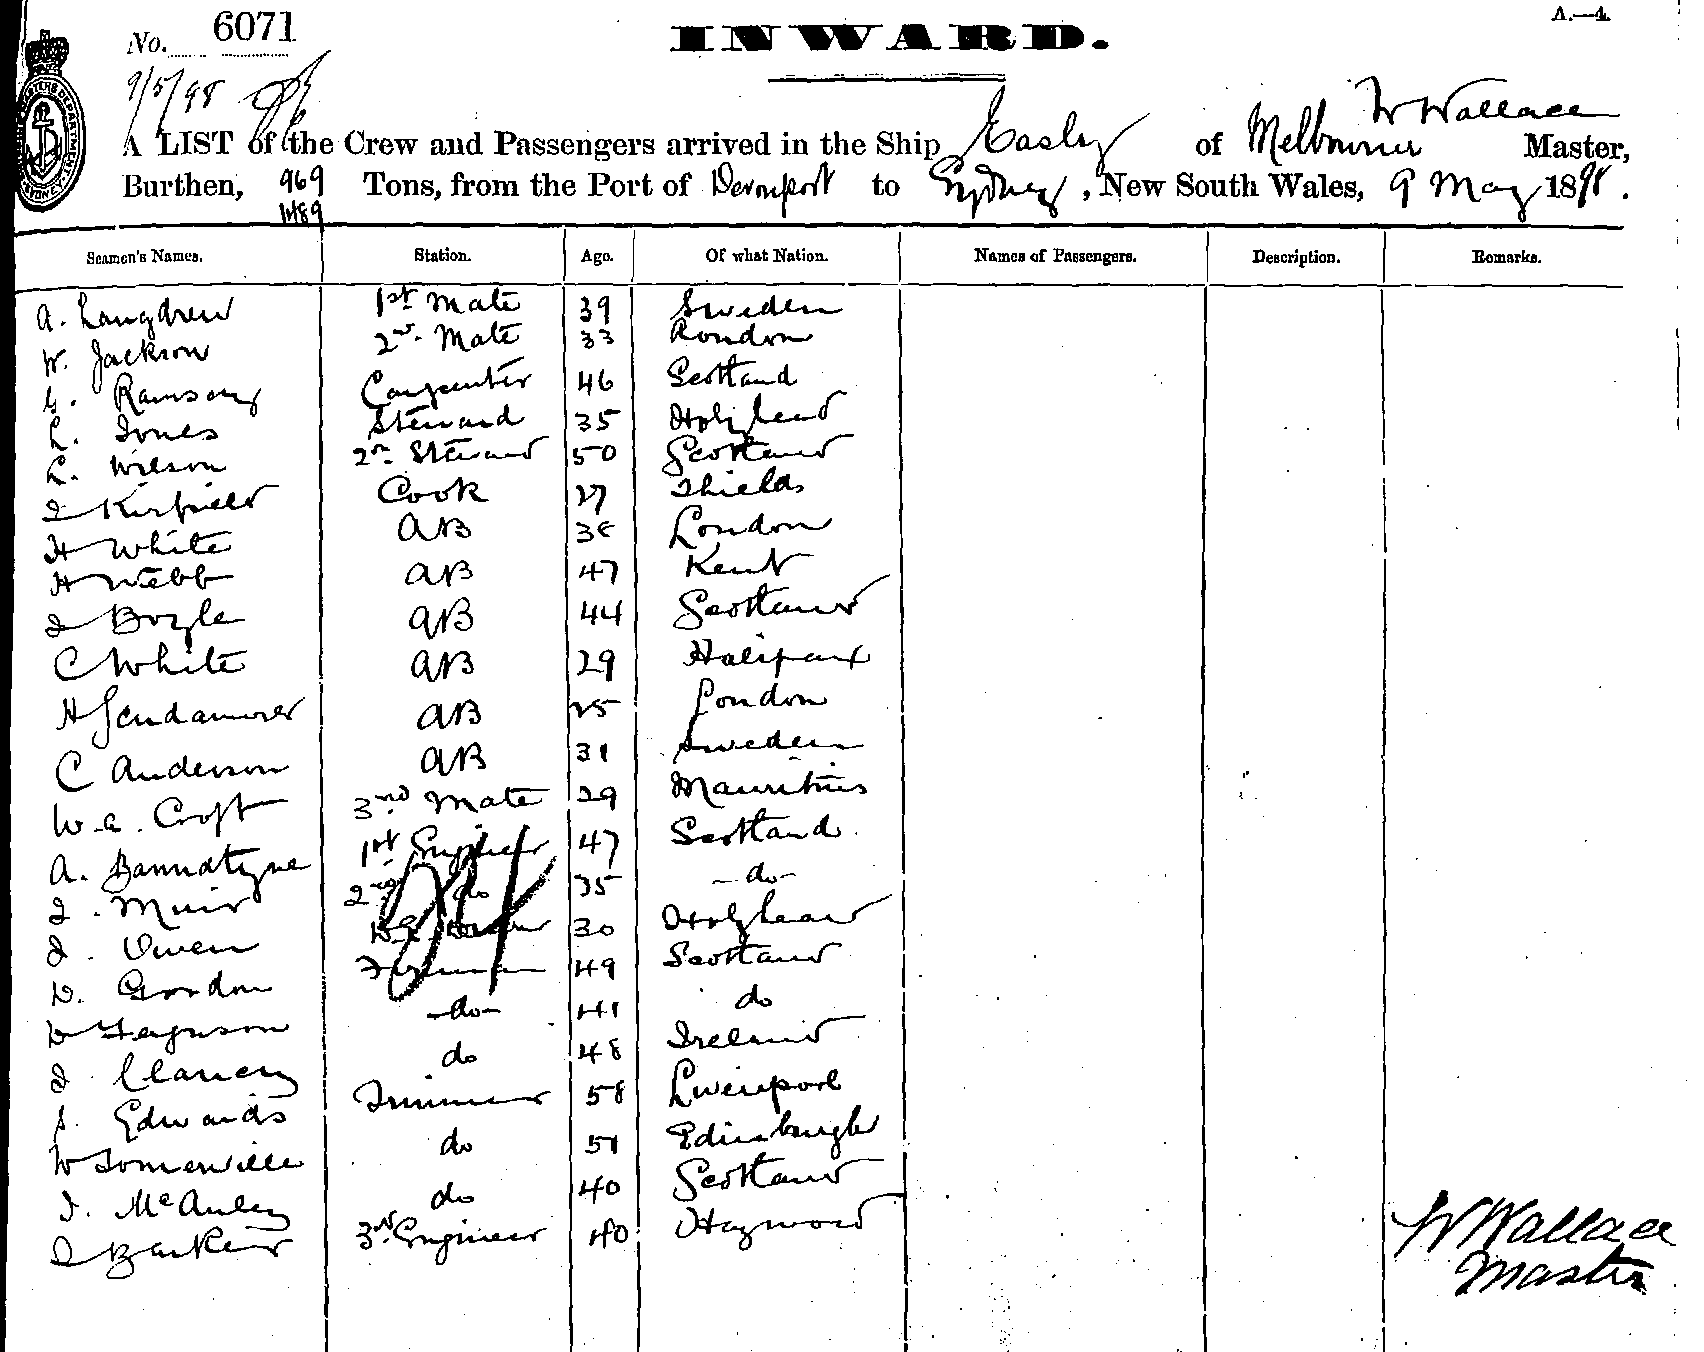 No. 6071
A.—4.
INWARD.
9/5/98
W Wallace
A LIST of the Crew and Passengers arrived in the Ship Easby of Melbourne Master,
Burthen, 969 Tons, from the Port of Devonport to Sydney, New South Wales, 9 May 1898.
1489
Seamen's Names. Station. Age. Of what Nation. Names of Passengers. Description. Remarks.
A. Langdrew 1st Mate 39 Sweden
W. Jackson 2nd Mate 33 London
G. Ramsay Carpenter 46 Scotland
L. Jones Steward 35 Holyhead
L. Wilson 2nd Steward 50 Scotland
J Kirfield Cook 27 Shields
H White AB 38 London
H Webb AB 47 Kent
J Boyle AB 44 Scotland
C White AB 29 Halifax
H AB 25 London
C Anderson AB 31 Sweden
W.A. Croft 3nd Mate 29 Mauritius
A. Bannatyne 1st Engineer 47 Scotland
J. Muir 2nd do 35 -do-
J. Owen 30 Holyhead
D. Gordon Fireman 49 Scotland
D Ferguson -do- 41 do
J Clancy do 48 Ireland
J. Edwards Trimmer 58 Liverpool
W Somerville do 51 Edinburgh
J. McAuley do 40 Scotland
J Barker 3rd Engineer 40 Haywood
W Wallace
Master